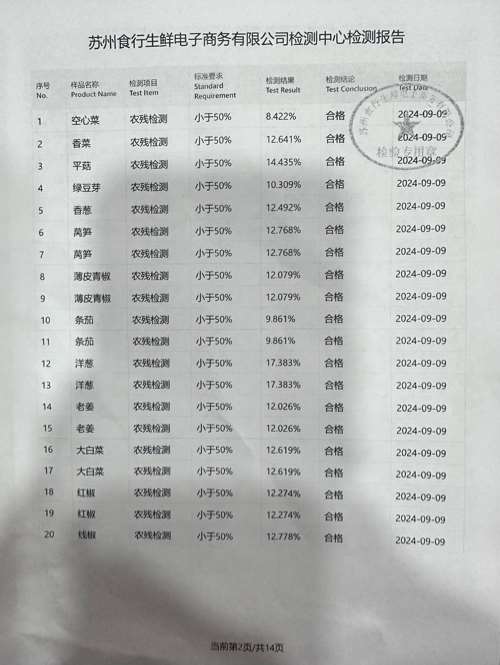 苏州食行生鲜电子商务有限公司检测中心检测报告
序号 样品名称 检测项目 标准要求 检测结果 检测结论 检测日期
No. Product Name Test Item Standard Requirement Test Result Test Conclusion Test Date
1 空心菜 农残检测 小于50% 8.422% 合格 2024-09-09
2 香菜 农残检测 小于50% 12.641% 合格 2024-09-09
3 平菇 农残检测 小于50% 14.435% 合格 2024-09-09
4 绿豆芽 农残检测 小于50% 10.309% 合格 2024-09-09
5 香葱 农残检测 小于50% 12.492% 合格 2024-09-09
6 莴笋 农残检测 小于50% 12.768% 合格 2024-09-09
7 莴笋 农残检测 小于50% 12.768% 合格 2024-09-09
8 薄皮青椒 农残检测 小于50% 12.079% 合格 2024-09-09
9 薄皮青椒 农残检测 小于50% 12.079% 合格 2024-09-09
10 条茄 农残检测 小于50% 9.861% 合格 2024-09-09
11 条茄 农残检测 小于50% 9.861% 合格 2024-09-09
12 洋葱 农残检测 小于50% 17.383% 合格 2024-09-09
13 洋葱 农残检测 小于50% 17.383% 合格 2024-09-09
14 老姜 农残检测 小于50% 12.026% 合格 2024-09-09
15 老姜 农残检测 小于50% 12.026% 合格 2024-09-09
16 大白菜 农残检测 小于50% 12.619% 合格 2024-09-09
17 大白菜 农残检测 小于50% 12.619% 合格 2024-09-09
18 红椒 农残检测 小于50% 12.274% 合格 2024-09-09
19 红椒 农残检测 小于50% 12.274% 合格 2024-09-09
20 线椒 农残检测 小于50% 12.778% 合格 2024-09-09
检验专用章
当前第2页/共14页